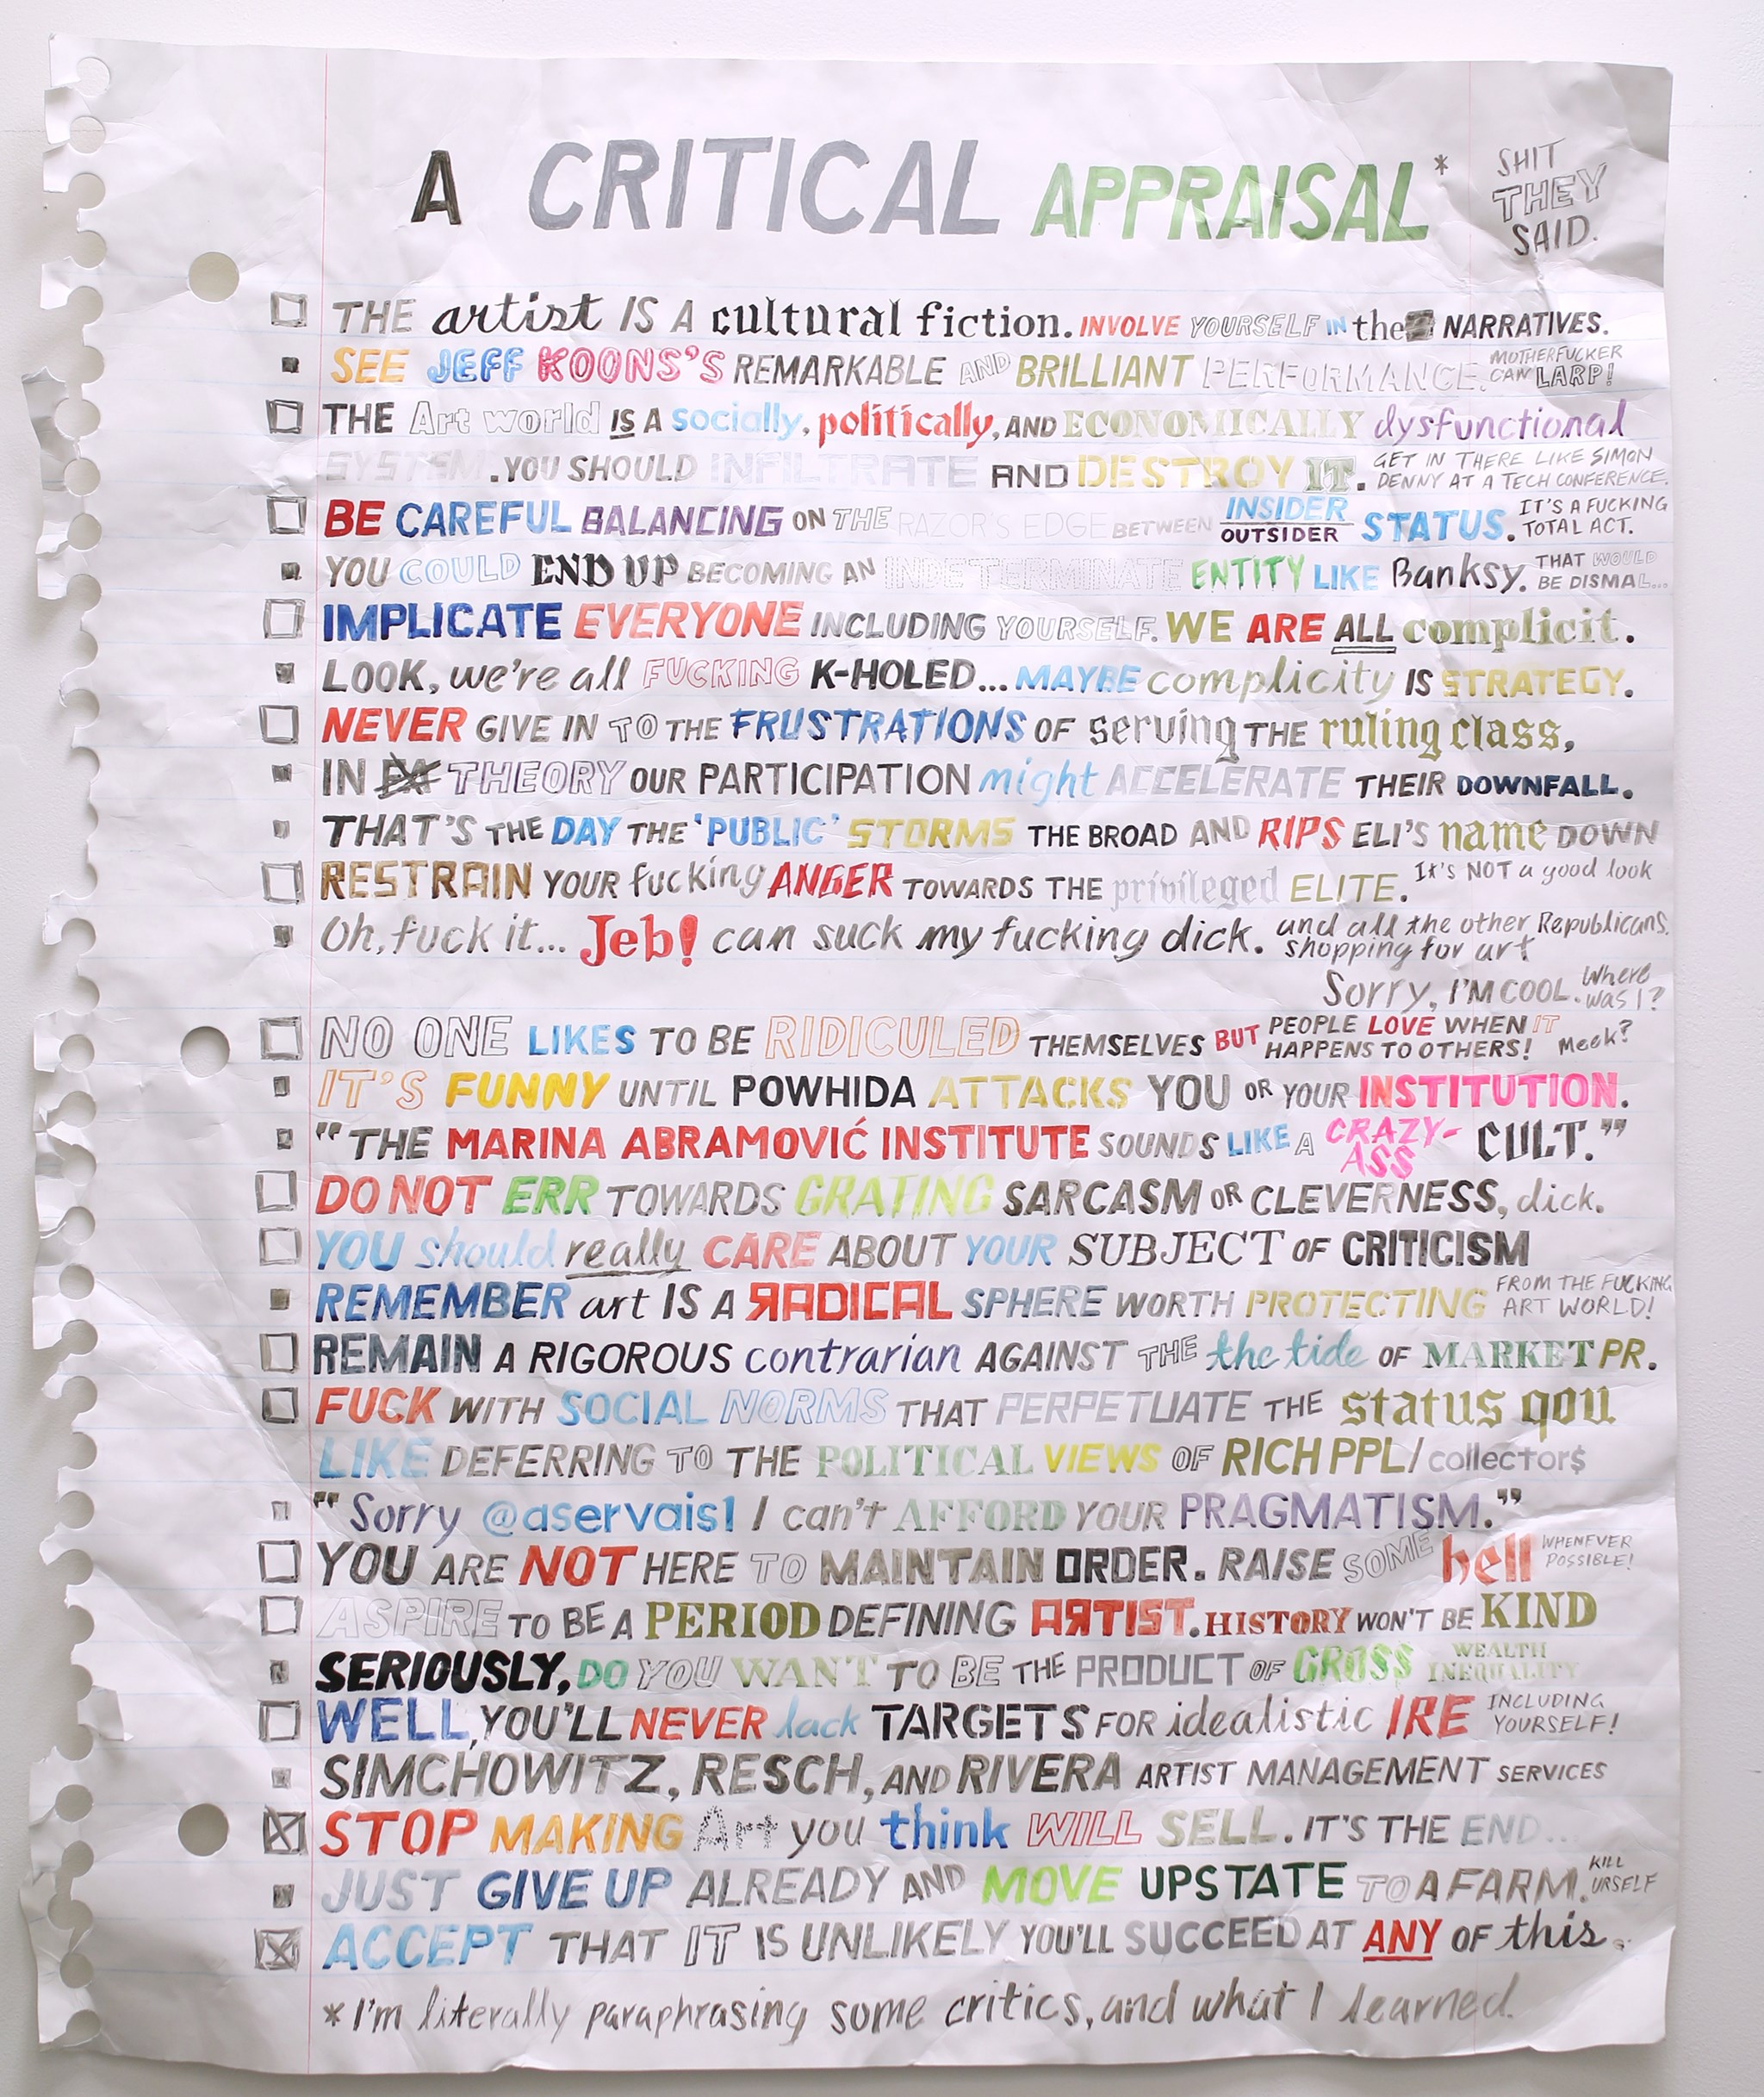 A CRITICAL APPRAISAL* SHIT THEY SAID.
THE artist IS A cultural fiction. INVOLVE YOURSELF IN the NARRATIVES.
SEE JEFF KOONS'S REMARKABLE AND BRILLIANT PERFORMANCE. MOTHERFUCKER CAN LARP!
THE Art world IS A socially, politically, AND ECONOMICALLY dysfunctional
SYSTEM. YOU SHOULD INFILTRATE AND DESTROY IT. GET IN THERE LIKE SIMON DENNY AT A TECH CONFERENCE.
BE CAREFUL BALANCING ON THE RAZOR'S EDGE BETWEEN INSIDER OUTSIDER STATUS. IT'S A FUCKING TOTAL ACT.
YOU COULD END UP BECOMING AN INDETERMINATE ENTITY LIKE Banksy. THAT WOULD BE DISMAL...
IMPLICATE EVERYONE INCLUDING YOURSELF. WE ARE ALL complicit.
LOOK, we're all FUCKING K-HOLED... MAYBE complicity IS STRATEGY.
NEVER GIVE IN TO THE FRUSTRATIONS OF serving THE ruling class,
IN THEORY OUR PARTICIPATION might ACCELERATE THEIR DOWNFALL.
THAT'S THE DAY THE 'PUBLIC' STORMS THE BROAD AND RIPS ELI'S name DOWN
RESTRAIN YOUR fucking ANGER TOWARDS THE privileged ELITE. It's NOT a good look
Oh, fuck it... Jeb! can suck my fucking dick. and all the other Republicans shopping for art
Sorry, I'M COOL. Where was I?
NO ONE LIKES TO BE RIDICULED THEMSELVES BUT PEOPLE LOVE WHEN IT HAPPENS TO OTHERS! Meek?
IT'S FUNNY UNTIL POWHIDA ATTACKS YOU OR YOUR INSTITUTION.
"THE MARINA ABRAMOVIĆ INSTITUTE SOUNDS LIKE A CRAZY-ASS CULT."
DO NOT ERR TOWARDS GRATING SARCASM OR CLEVERNESS, dick.
YOU should really CARE ABOUT YOUR SUBJECT OF CRITICISM
REMEMBER art IS A RADICAL SPHERE WORTH PROTECTING FROM THE FUCKING ART WORLD!
REMAIN A RIGOROUS contrarian AGAINST THE the tide OF MARKET PR.
FUCK WITH SOCIAL NORMS THAT PERPETUATE THE status qou
LIKE DEFERRING TO THE POLITICAL VIEWS OF RICH PPL/collector$
"Sorry @aservais1 I can't AFFORD YOUR PRAGMATISM."
YOU ARE NOT HERE TO MAINTAIN ORDER. RAISE SOME hell WHENEVER POSSIBLE!
ASPIRE TO BE A PERIOD DEFINING ARTIST. HISTORY WON'T BE KIND
SERIOUSLY, DO YOU WANT TO BE THE PRODUCT OF GROSS WEALTH INEQUALITY
WELL, YOU'LL NEVER lack TARGETS FOR idealistic IRE INCLUDING YOURSELF!
SIMCHOWITZ, RESCH, AND RIVERA ARTIST MANAGEMENT SERVICES
STOP MAKING Art you think WILL SELL. IT'S THE END...
JUST GIVE UP ALREADY AND MOVE UPSTATE TO A FARM. KILL URSELF
ACCEPT THAT IT IS UNLIKELY YOU'LL SUCCEED AT ANY OF this.
*I'm literally paraphrasing some critics, and what I learned.